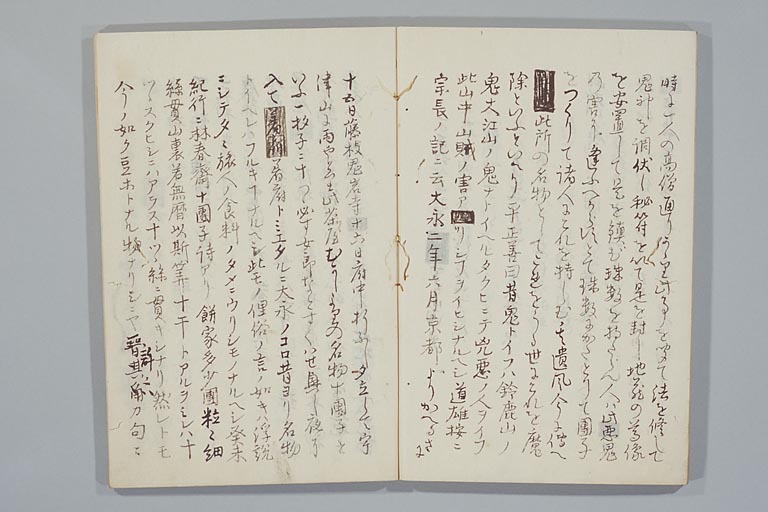 時に一人の高僧通りかゝり此事を聞て法を修して
鬼神を調伏し秘符を以て是を封し地蔵の尊像
を安置して是を鎮む珠数を持たらん人ハ此悪鬼
の害に逢ふへからすとて珠数にかたとりて団子
をつくりて諸人にこれを持しむ其遺風今に伝へ
此所の名物としてこれをうる世にこれを魔
除といふといへり平正善曰昔鬼トイフハ鈴鹿山ノ
鬼大江山ノ鬼ナトイヘルタクヒニテ兇悪ノ人ヲイフ
此山中山賊ノ害アリシヲイヒシナルヘシ道雄按ニ
宗長ノ記ニ云大永二年六月京都よりかへるさに
十五日藤枝鬼岩寺十六日府中折ふし夕立して宇
津山に雨やとり此茶屋むかしよりの名物十團子と
いふ一杓子に十つゝ必す女郎なとにすくはせ興し夜に
入て着府トミエタルニ大永ノコロ昔ヨリ名物
トイヘレハフルキコトナルヘシ此モノ俚俗ノ言ノ如キ浮説
ニシテタヽ旅人ノ食料ノタメニウリシモノナルヘシ癸未
紀行ニ林春齋十團子詩アリ餅家多少團粒々細
絲貫山裏若無暦以斯筭十干トアルヲミレハ十
ツヽスクヒシニハアラス十ツヽ絲ニ貫キシナリ然レトモ
今ノ如ク豆ホトナル物ナリシニヤ許六カ句ニ